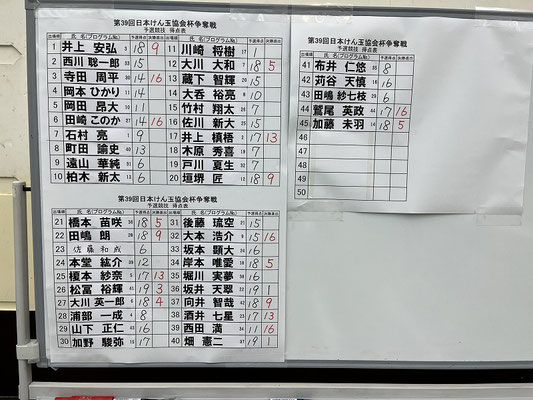 第39回日本けん玉協会杯争奪戦
予選競技 得点表
出場順 氏 名(プログラムNo) 予選得点 決勝進出 出場順 氏 名(プログラムNo) 予選得点 決勝進出
1 井上 安弘 18 9 11 川崎 将樹 1
2 西川 聡一郎 15 12 大川 大和 18 5
3 寺田 周平 14 16 13 蔵下 智輝 15
4 岡本 ひかり 14 14 大呑 裕亮 10
5 岡田 昂大 11 15 竹村 翔太 7
6 田崎 このか 14 16 16 佐川 新大 15
7 石村 亮 9 17 井上 槙梧 17 13
8 町田 諭史 13 18 木原 秀喜 7
9 遠山 華純 6 19 戸川 夏生 7
10 柏木 新太 6 20 垣堺 匠 18 9
第39回日本けん玉協会杯争奪戦
予選競技 得点表
出場順 氏 名(プログラムNo) 予選得点 決勝進出 出場順 氏 名(プログラムNo) 予選得点 決勝進出
21 橋本 苗咲 18 5 31 後藤 琉空 15
22 田嶋 朗 18 9 32 大本 浩介 15 16
23 佐藤 和成 6 33 坂本 顕大 6
24 本堂 紘介 12 34 岸本 唯愛 18 5
25 榎本 紗奈 17 13 35 堀川 実夢 16
26 松冨 裕輝 19 3 36 坂井 天翠 19 1
27 大川 英一郎 18 4 37 向井 智哉 18 9
28 浦部 一成 8 38 酒井 七星 17 13
29 山下 正仁 6 39 西田 満 11 16
30 加野 駿弥 17 40 畑 憲二 19 1
第39回日本けん玉協会杯争奪戦
予選競技 得点表
出場順 氏 名(プログラムNo) 予選得点 決勝進出
41 布井 仁悠 8
42 苅谷 天慎 16
43 田嶋 紗七枝 6
44 鷲尾 英政 17 16
45 加藤 未羽 18 5
46
47
48
49
50